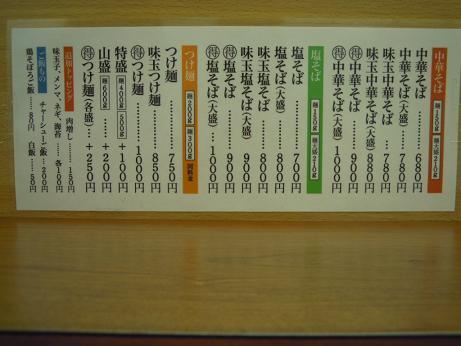 中華そば 麺150g 麺大盛210g
中華そば………680円
中華そば(大盛)…780円
味玉中華そば……780円
味玉中華そば(大盛)880円
㊝中華そば………900円
㊝中華そば(大盛)1000円
塩そば 麺150g 麺大盛210g
塩そば…………700円
塩そば(大盛)……800円
味玉塩そば………800円
味玉塩そば(大盛)…900円
㊝塩そば…………900円
㊝塩そば(大盛)…1000円
つけ麺 麺200g 麺300g 同料金
つけ麺…………750円
味玉つけ麺………850円
㊝つけ麺………1000円
特盛 麺400g 500g +100円
山盛 麺600g …+200円
㊝つけ麺(各盛)…+250円
追加トッピング 肉増し……150円
味玉子、メンマ、ネギ、海苔……各100円
ご飯もの チャーシューご飯…200円
鶏そぼろご飯……80円 白飯……50円